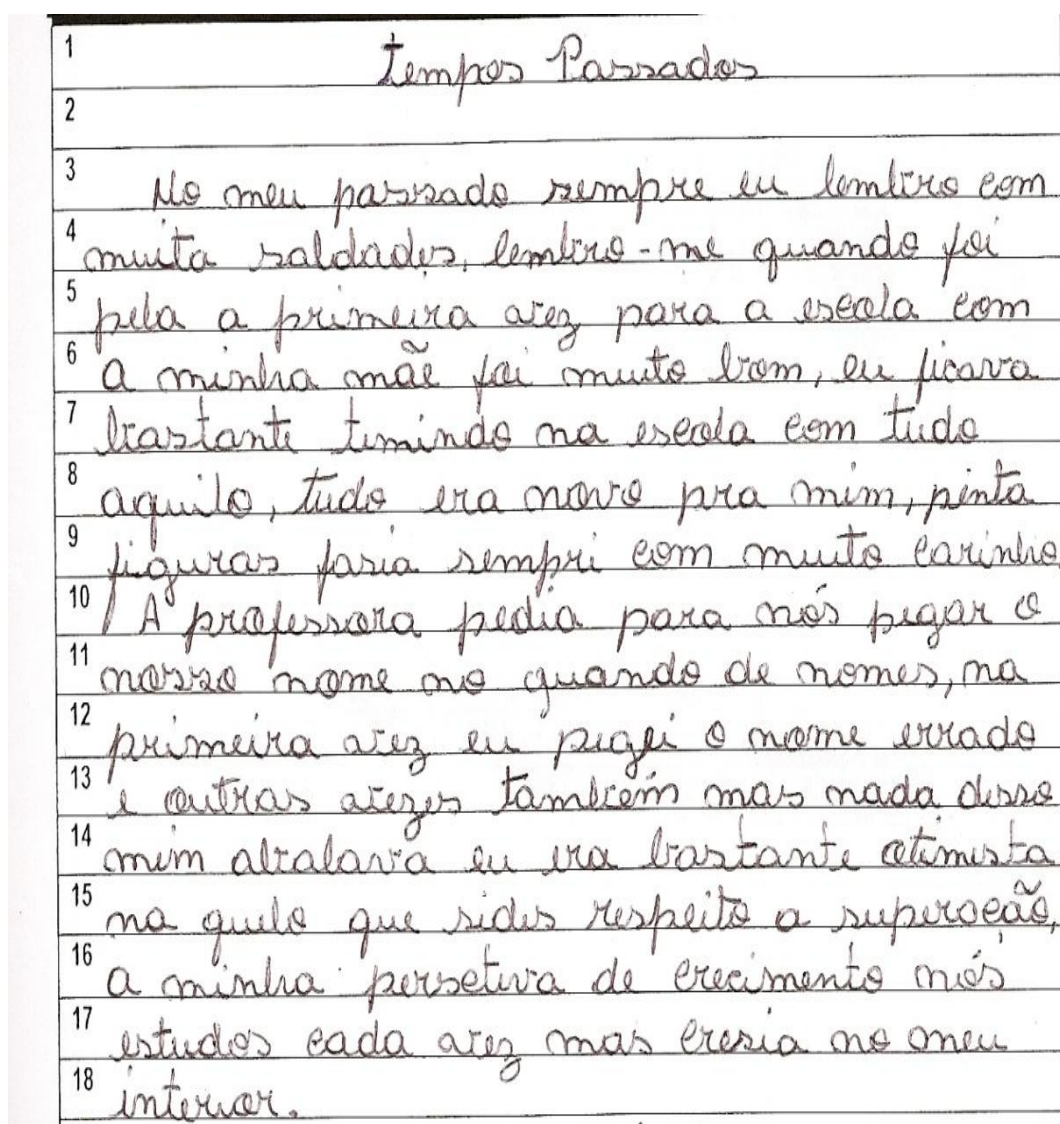 1 Tempos Passados
2
3 No meu passado sempre eu lembro com
4 muita saldades, lembro-me quando foi
5 pela a primeira vez para a escola com
6 a minha mãe foi muito bom, eu ficava
7 bastante timindo na escola com tudo
8 aquilo, tudo era novo pra mim, pinta
9 figuras fasia sempri com muito carinho
10 A professora pedia para nós pegar o
11 nosso nome no quando de nomes, na
12 primeira vez eu pegei o nome errado
13 e outras vezes também mas nada disso
14 mim abalava eu era bastante otimista
15 na quilo que sides respeito a superação,
16 a minha persetiva de crecimento nós
17 estudos cada vez mas cresia no meu
18 interior.